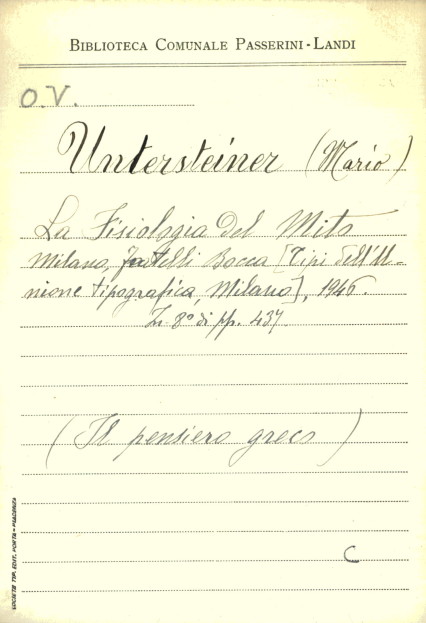 BIBLIOTECA COMUNALE PASSERINI-LANDI
O.V.
Untersteiner (Mario)
La Fisiologia del Mito
Milano, Fratelli Bocca [Tipi dell'U-
nione tipografica, Milano], 1946.
In 8° di pp. 437.
(Il pensiero greco)
C
SOCIETÀ TIP. EDIT. PORTA - PIACENZA